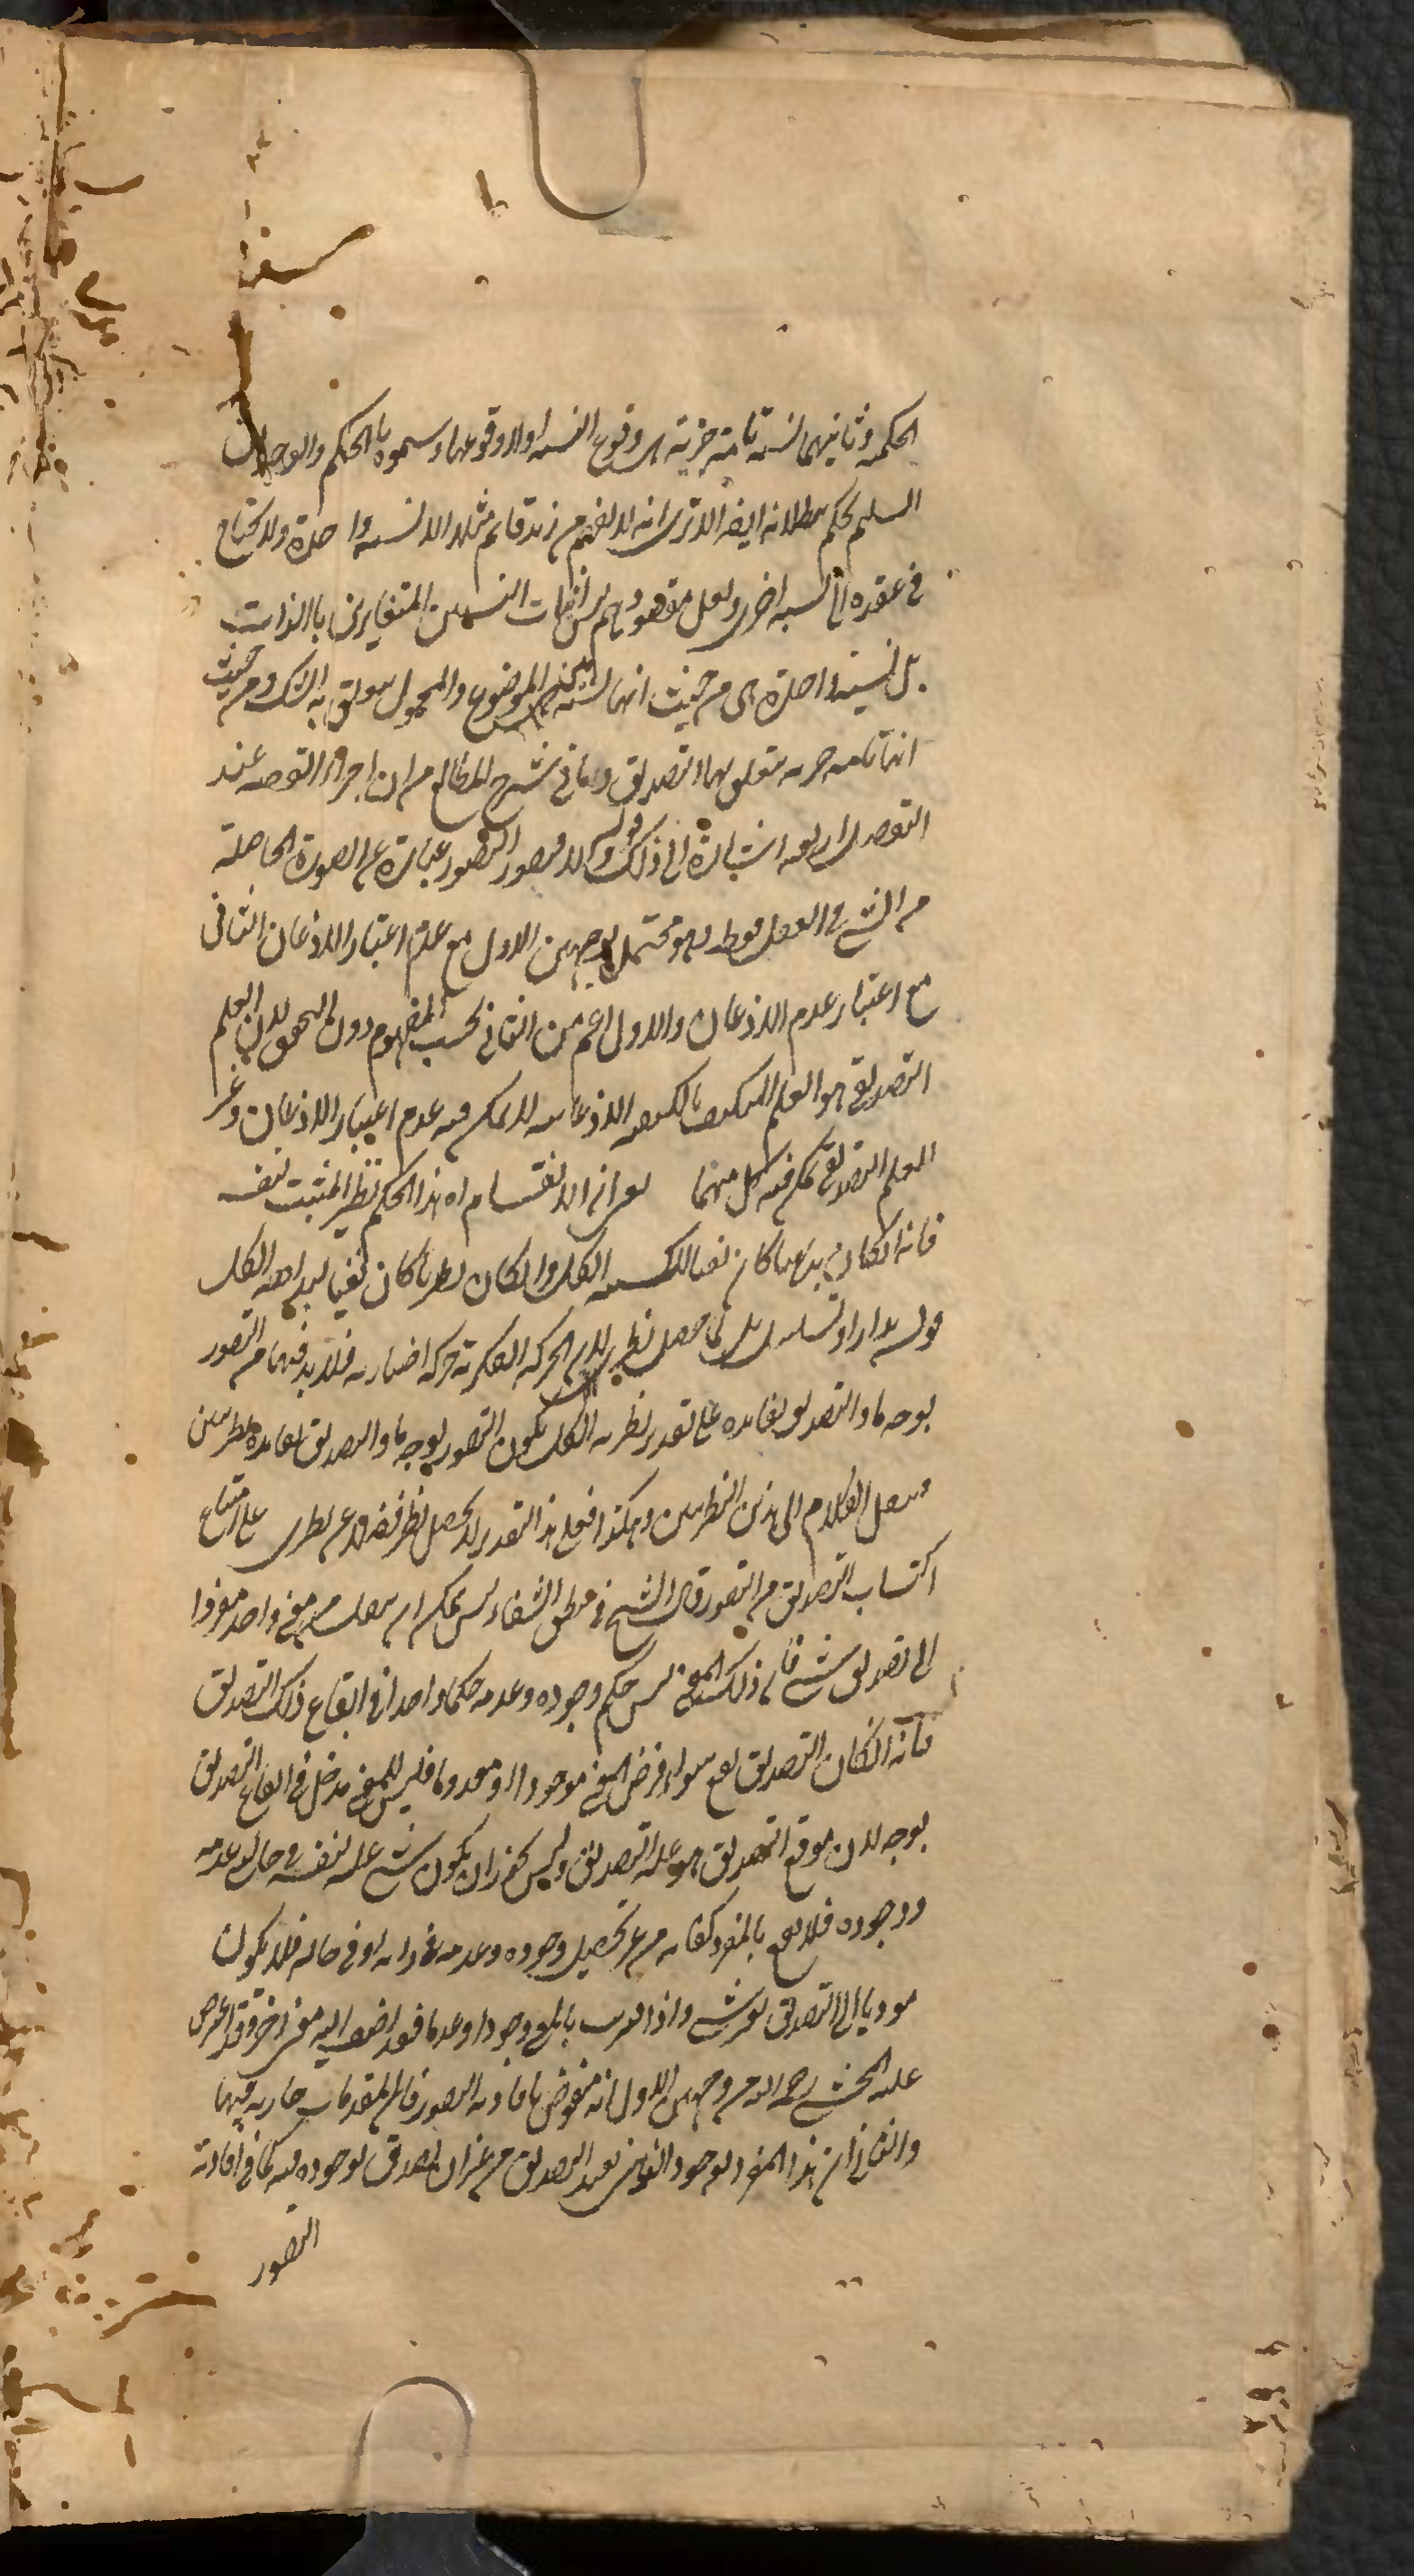 الحكمية وثانيهما نسبة تامة خبرية هي وقوع النسبة اولا وقوعها وسموه بالحكم والوجدان
السليم يحكم ببطلانه ايضا الا ترى انه لا يفهم من زيد قائم مثلا الا نسبة واحدة ولا يحتاج
في عقده الى نسبة اخرى ولعل مقصودهم ليس اثبات النسبتين المتغايرتين بالذات
بل نسبة واحدة هي من حيث انها نسبة بين الموضوع والمحمول يتعلق به الشك ومن حيث
انها تامة خبرية يتعلق بها التصديق وما في شرح المطالع من ان اجزاء القضية عند
التفصيل اربعة اشارة الى ذلك قوله والا فتصور التصور عبارة عن الصورة الحاصلة
من الشيء في العقل فقط وهو محتمل لوجهين الاول مع عدم اعتبار الاذعان الثاني
مع اعتبار عدم الاذعان والاول اعم من الثاني بحسب المفهوم دون التحقق لان العلم
التصديقي هو العلم المتكيف بالكيفية الاذعانية لا يمكن فيه عدم اعتبار الاذعان وغير
العلم التصديقي يمكن فيه كل منهما الانقسام اه هذا الحكم نظير المثبت نفسه
فانه ان كان بديهيا كان نفيا لكسبية الكل وان كان نظريا كان نفيا لبداهة الكل
قوله يدار او تسلسل بل لما حصل نظري لان الحركة الفكرية حركة اختيارية فلا بد فيها من التصور
بوجه ما والتصديق بفائدة على تقدير نظرية الكل يكون التصور بوجه ما والتصديق بفائدة نظريين
وينقل الكلام الى هذين النظريين وهكذا فعلى هذا التقدير لا يحصل نظر فضلا عن نظري على امتناع
اكتساب التصديق من التصور قال الشيخ في منطق الشفاء ليس يمكن ان ينتقل من معنى واحد مفردا
الى تصديق شيء فان ذلك المعنى ليس حكم وجوده وعدمه حكما واحدا في ايقاع ذلك التصديق
فانه ان كان التصديق يقع سواء فرض المعنى موجودا او معدوما فليس للمعنى مدخل في ايقاع التصديق
بوجه لان موقع التصديق هو علة التصديق وليس يجوز ان يكون شيء علة لنفسه في حالتي عدمه
ووجوده فلا يقع بالمفرد كفاية من غير تحصيل وجوده وعدمه في ذاته او في حاله فلا يكون
موديا الى التصديق بغيره شيء واذا اقترنت بالمعنى وجودا وعدما فقد اضيف اليه معنى اخر وقد اعترض
عليه المحشي رحمه الله من وجهين الاول انه منقوض بافادته التصور فان المقدمات جارية فيها
والثاني ان هذا المفرد بوجوده الذهني يفيد التصديق من غير ان يصدق بوجوده فيه كما في افادته
التصور